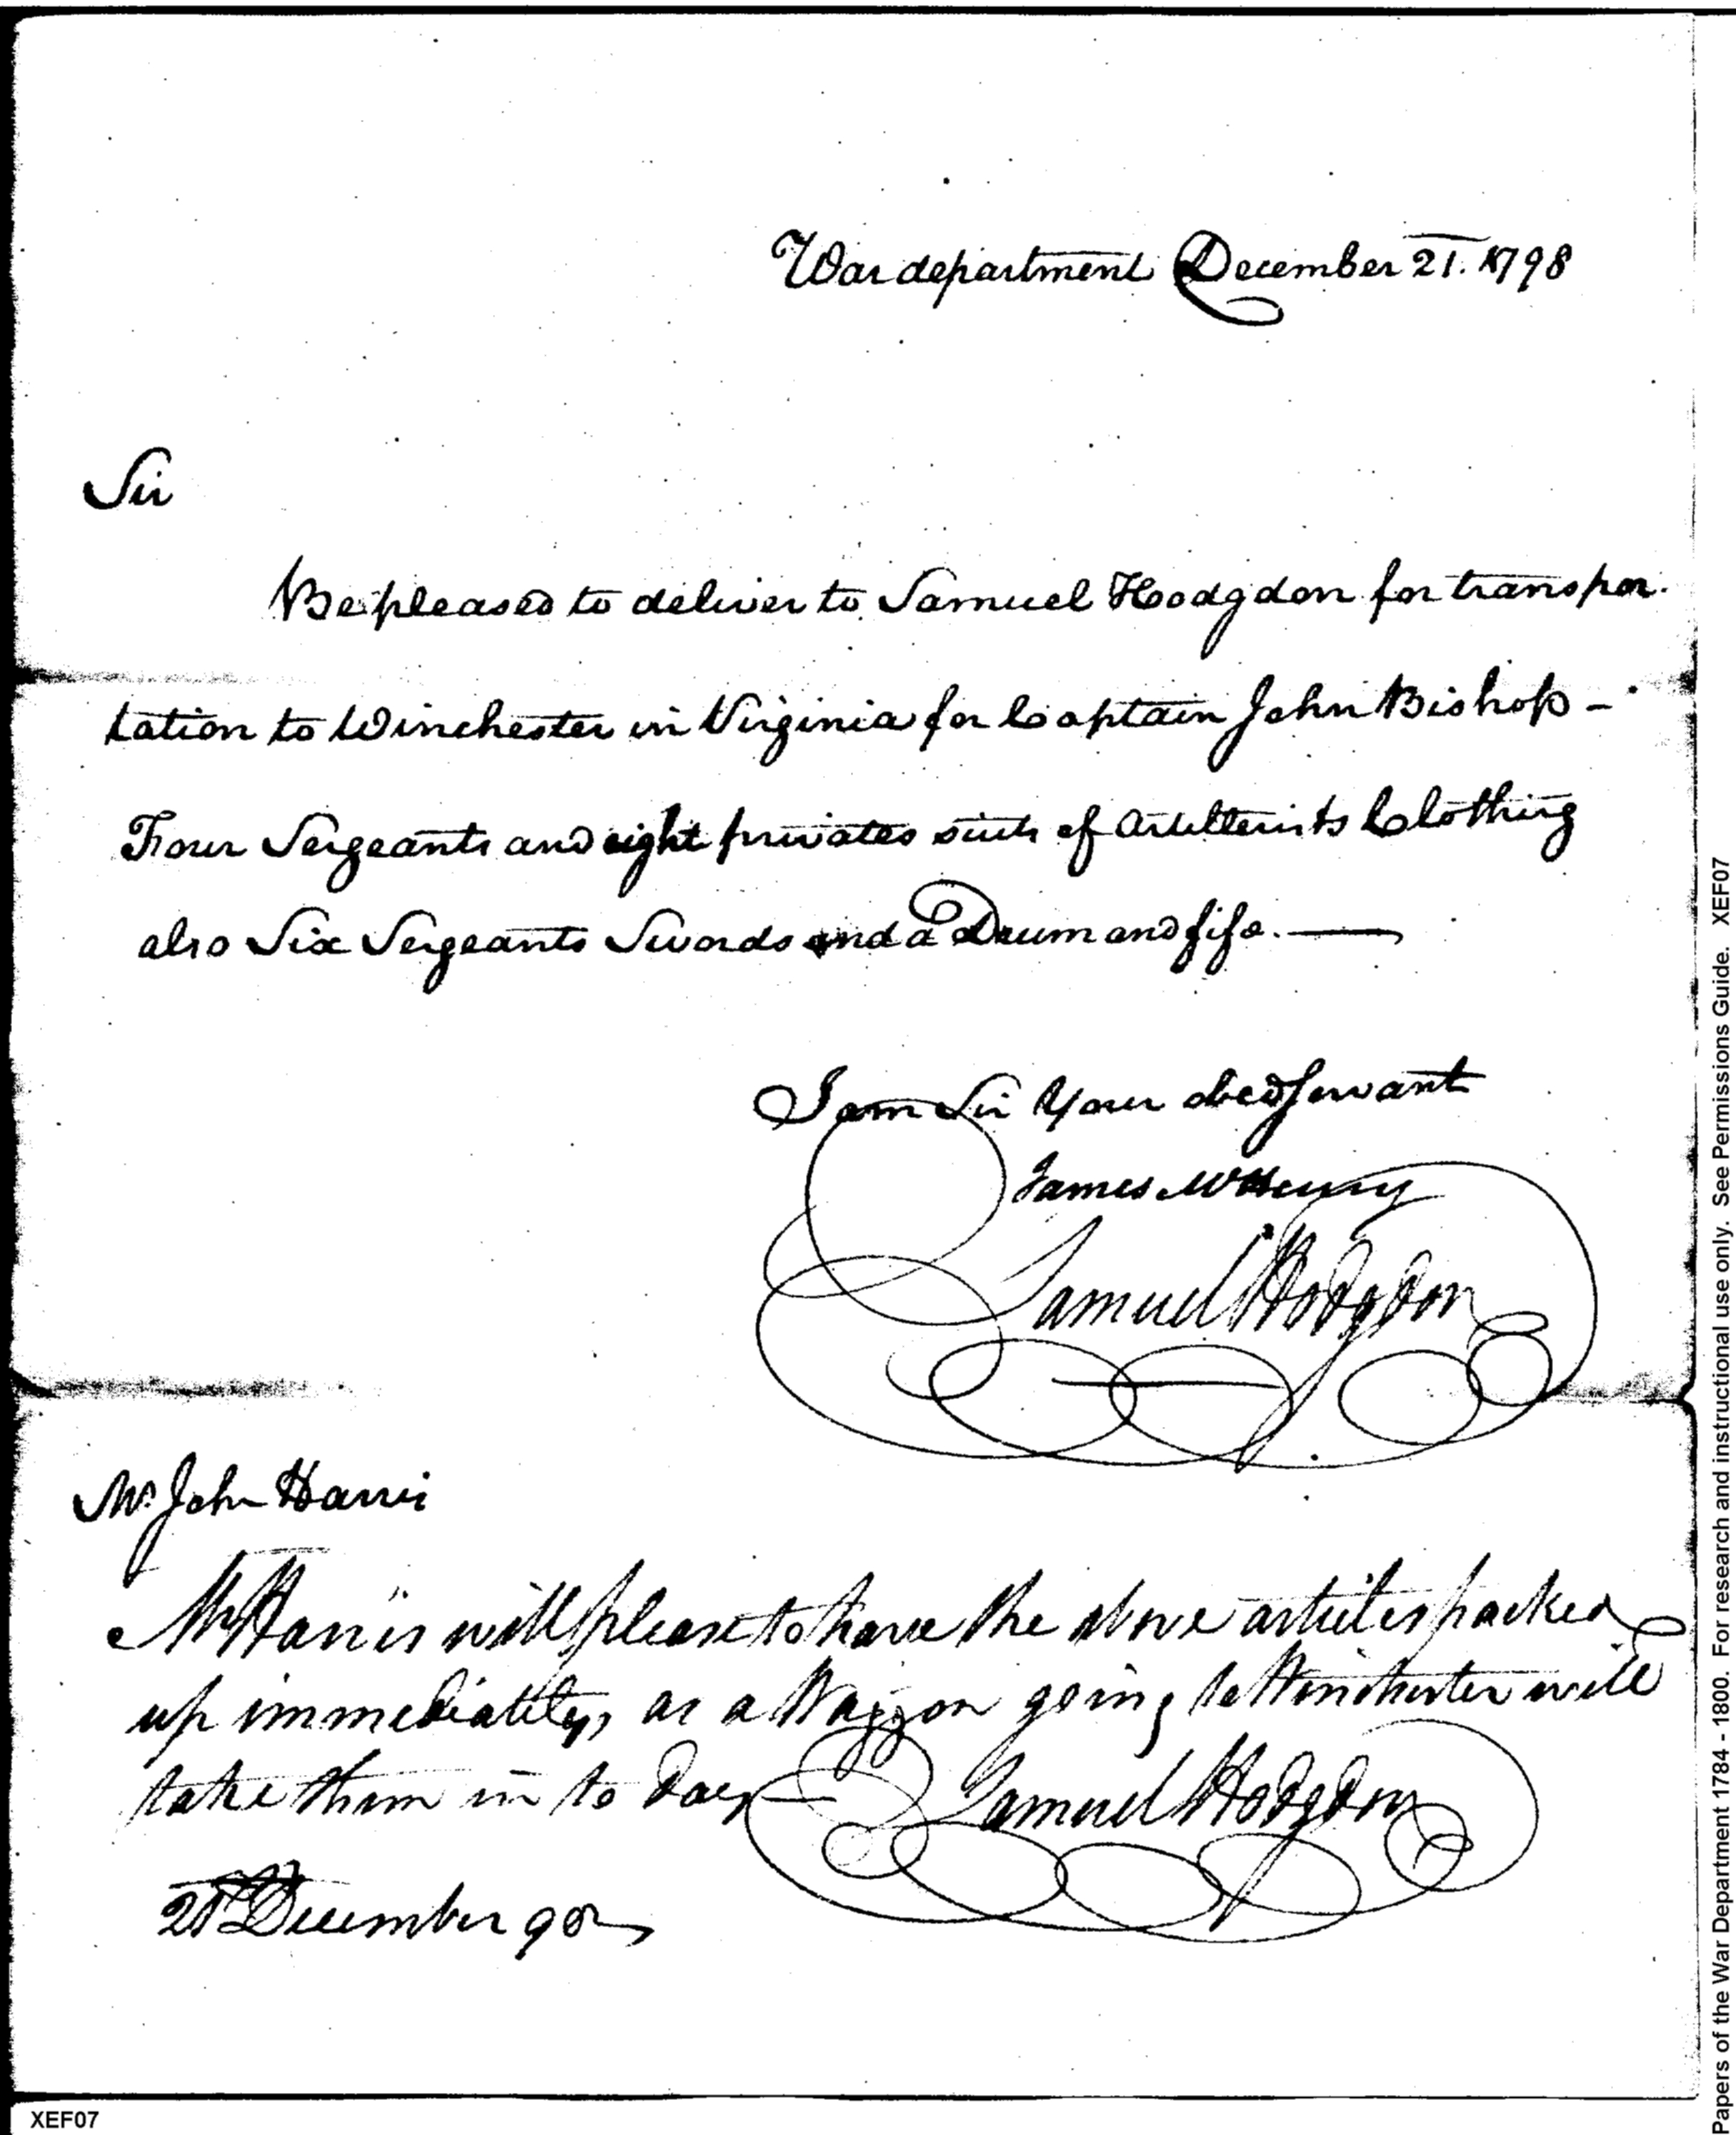 War department December 21. 1798
Sir
Be pleased to deliver to Samuel Hodgdon for transpor.
tation to Winchester in Virginia for Captain John Bishop -
Four Sergeants and eight privates suits of Artillerists Clothing
also Six Sergeants Swords and a Drum and fife.
I am Sir Your obed Servant
James McHenry
Samuel Hodgdon
Mr. John Harris
Mr Harris will please to have the above articles packed
up immediately, as a Waggon going to Winchester will
take them in to day
Samuel Hodgdon
21st December 98
XEF07
Papers of the War Department 1784 - 1800. For research and instructional use only. See Permissions Guide. XEF07